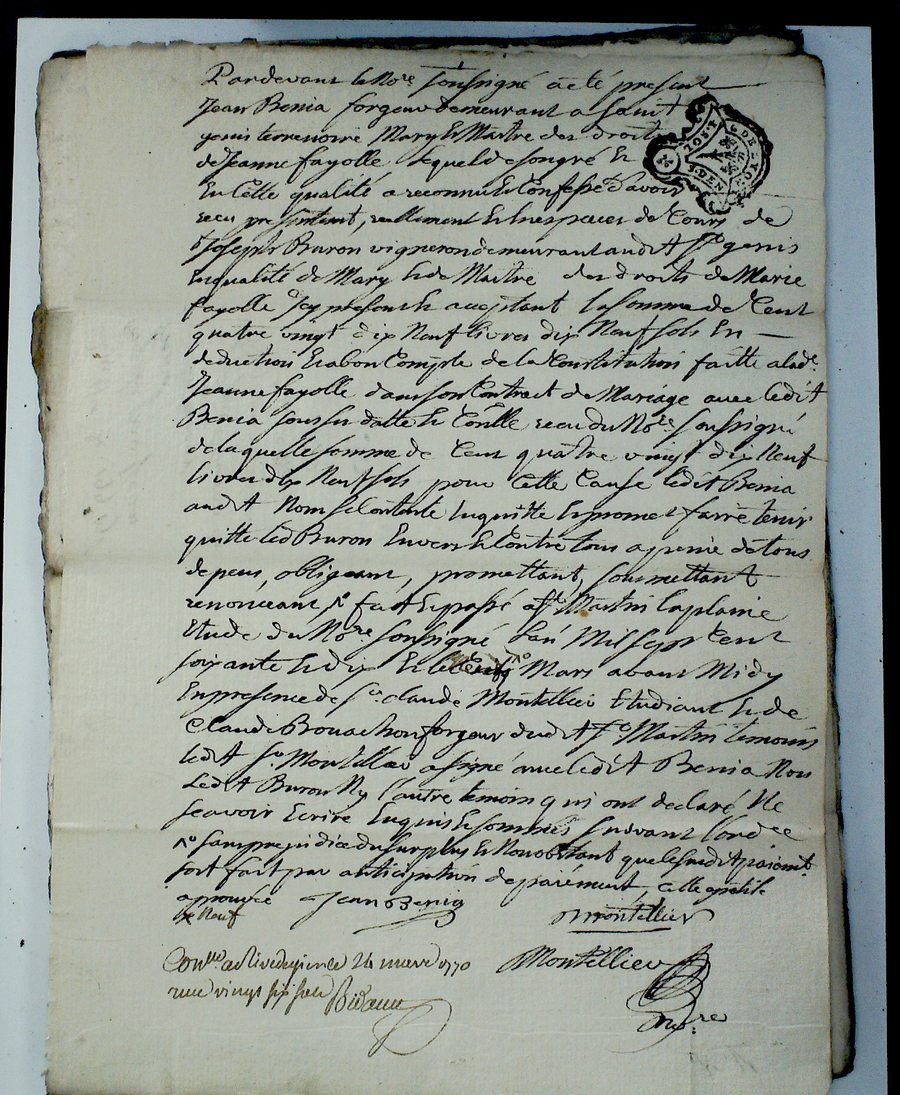 Pardevant le No.re Soussigné a eté present
Jean Benia forgeur demeurant a Saint
genis terrenoire Mary & Maitre des droits
de Jeanne fayolle lequel de son gré &
En Cette qualité a reconnu & Confessé d'avoir
recu presentement, reellement & En especes de Cours de
Joseph Buron vigneron demeurant audit St genis
En qualité de Mary & de Maitre des droits de Marie
fayolle Icy present & acceptant la somme de Cent
quatre vingt dix Neuf livres dix Neuf sols En
deduction & abon Compte de la Constitution faitte a lad.e
Jeanne fayolle dans son Contract de Mariage avec ledit
Benia sous sa datte & Contrelle recu du No.re Soussigné
de laquelle somme de Cent quatre vingt dix Neuf
livres dix Neuf sols pour Cette Cause ledit Benia
audit Nom se Contente En quitte & promet faire tenir
quitte led Buron Envers & Contre tous a peine de tous
depens, obligeant, promettant, soumettant
renonceant fait & passé a St Martin la plaine
Etude du No.re Soussigné L'an Mil sept Cent
soixante & dix & le Mars avant Midy
En presence de Sr. claude Montellier Etudiant & de
Claude Brouachon forgeur dudit St Martin temoins
ledit Sr Montellier a signé avec ledit Benia Non
Ledit Buron Ny l'autre temoin qui ont declaré Ne
scavoir Ecrire Enquis & sommés suivant l'ord.ce
sans prejudice du surplus & Nonobstant que le susdit paiemt
soit fait par anticipation de paiement, Cette apostile
aprouvée Jean Benia Montellier
Neuf
Con.lle a Rivedegier le 24 mars 1770
recu vingt six sols Montellier
No.re